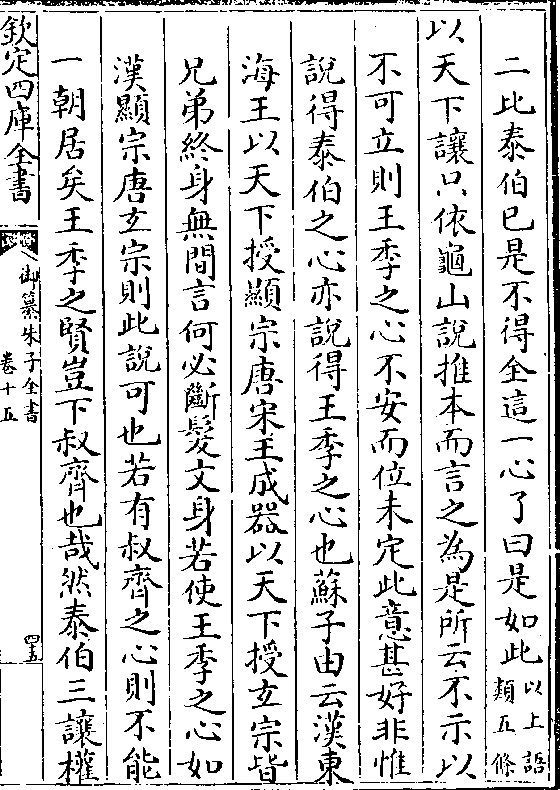 二比泰伯已是不得全這一心了曰是如此以上語類五條
以天下讓只依龜山說推本而言之為是所云不示以
不可立則王季之心不安而位未定此意甚好非惟
說得泰伯之心亦說得王季之心也蘇子由云漢東
海王以天下授顯宗唐宋王成器以天下授玄宗皆
兄弟終身無間言何必斷髮文身若使王季之心如
漢顯宗唐玄宗則此說可也若有叔齊之心則不能
一朝居矣王季之賢豈下叔齊也哉然泰伯三讓權
欽定四庫全書
御纂朱子全書
卷十五
四五